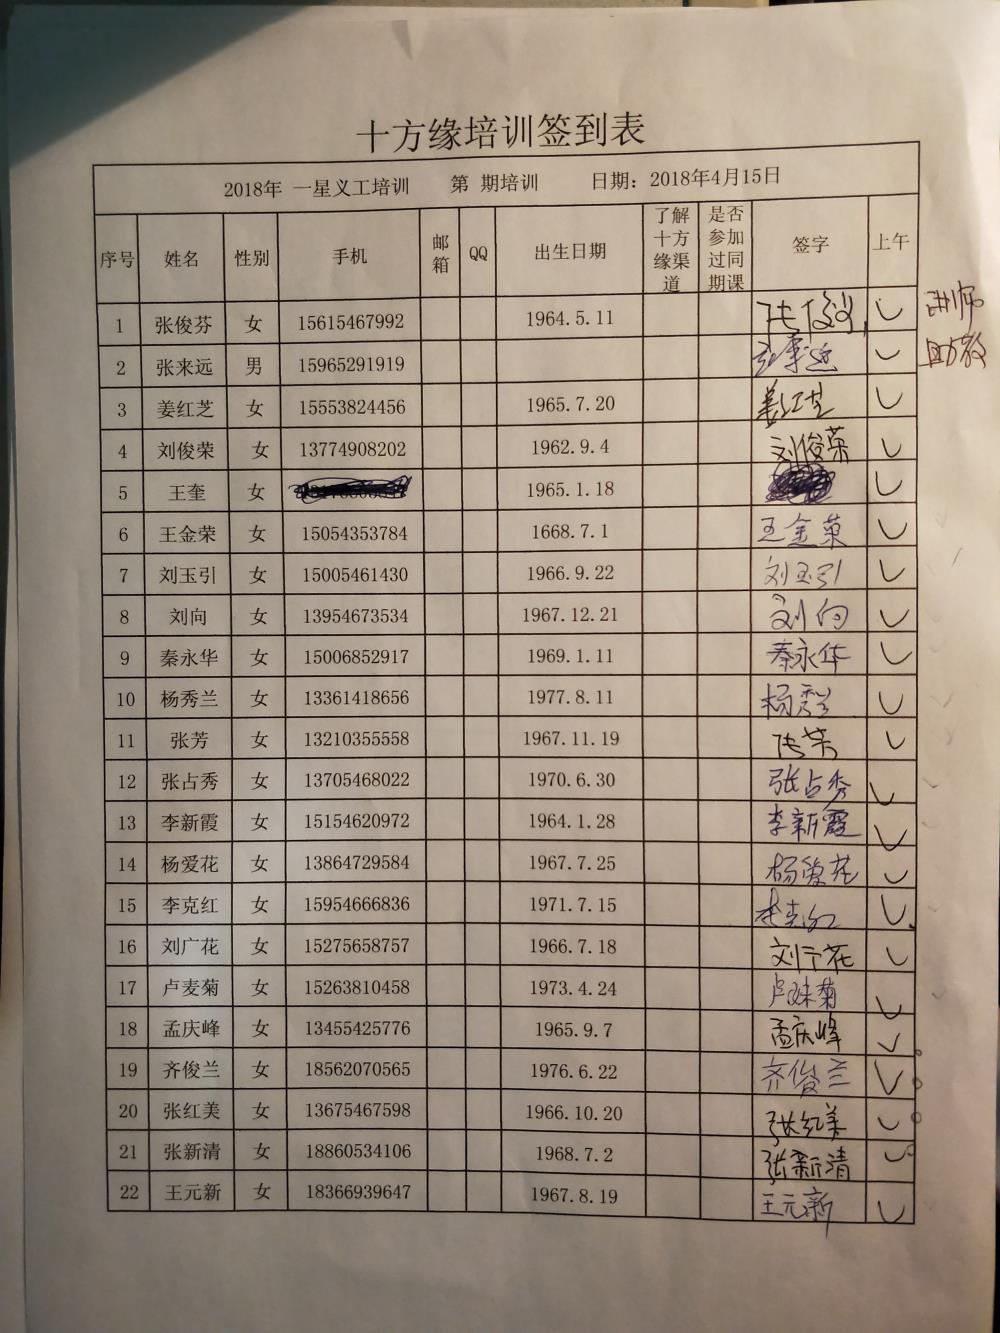 十方缘培训签到表
2018年 一星义工培训 第 期培训 日期：2018年4月15日
序号 姓名 性别 手机 邮箱 QQ 出生日期 了解十方缘渠道 是否参加过同期课 签字 上午
1 张俊芬 女 15615467992 1964.5.11 讲师
2 张来远 男 15965291919 张来远 助教
3 姜红芝 女 15553824456 1965.7.20 姜红芝
4 刘俊荣 女 13774908202 1962.9.4 刘俊荣
5 王奎 女 1965.1.18
6 王金荣 女 15054353784 1668.7.1 王金荣
7 刘玉引 女 15005461430 1966.9.22 刘玉引
8 刘向 女 13954673534 1967.12.21 刘向
9 秦永华 女 15006852917 1969.1.11 秦永华
10 杨秀兰 女 13361418656 1977.8.11 杨秀兰
11 张芳 女 13210355558 1967.11.19 张芳
12 张占秀 女 13705468022 1970.6.30 张占秀
13 李新霞 女 15154620972 1964.1.28 李新霞
14 杨爱花 女 13864729584 1967.7.25 杨爱花
15 李克红 女 15954666836 1971.7.15 李克红
16 刘广花 女 15275658757 1966.7.18 刘广花
17 卢麦菊 女 15263810458 1973.4.24
18 孟庆峰 女 13455425776 1965.9.7 孟庆峰
19 齐俊兰 女 18562070565 1976.6.22 齐俊兰
20 张红美 女 13675467598 1966.10.20 张红美
21 张新清 女 18860534106 1968.7.2 张新清
22 王元新 女 18366939647 1967.8.19 王元新